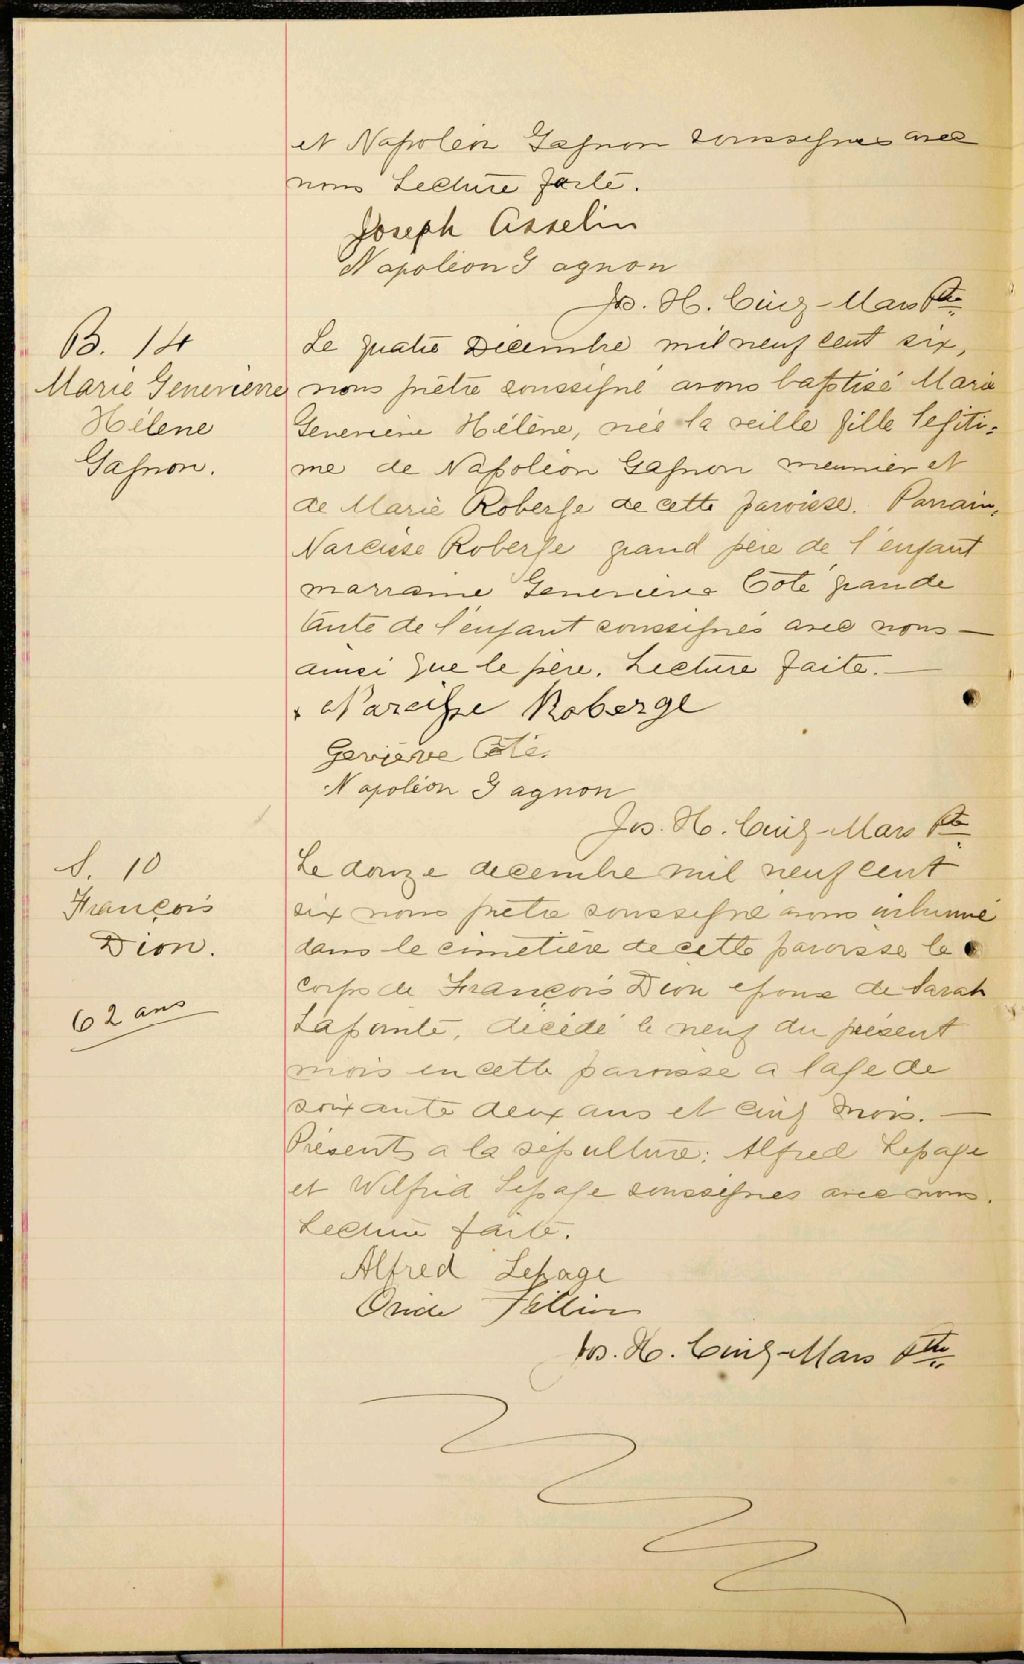 et Napoléon Gagnon soussignés avec
nous Lecture faite.
Joseph Asselin
Napoléon Gagnon
Jos. H. Cinq-Mars Ptre
B. 14
Marie Genevieve
Hélène
Gagnon.
Le quatre Decembre mil neuf cent six,
nous prêtre soussigné avons baptisé Marie
Genevieve Hélène, née la veille fille legiti=
me de Napoléon Gagnon meunier et
de Marie Roberge de cette paroisse. Parrain,
Narcisse Roberge grand père de l'enfant
marraine Genevieve Coté grande
tante de l'enfant soussignés avec nous —
ainsi que le père. Lecture faite. —
Narcisse Roberge
Geviève Côté.
Napoléon Gagnon
Jos. H. Cinq-Mars Ptre
S. 10
François
Dion.
62 ans
Le douze decembre mil neuf cent
six nous prêtre soussigné avons inhumé
dans le cimetière de cette paroisse le
corps de François Dion epoux de Sarah
Lapointe, décédé le neuf du présent
mois en cette paroisse a l'age de
soixante deux ans et cinq mois. —
Présents a la sépulture: Alfred Lepage
et Wilfrid Lepage soussignés avec nous.
Lecture faite.
Alfred Lepage
Jos. H. Cinq-Mars Ptre